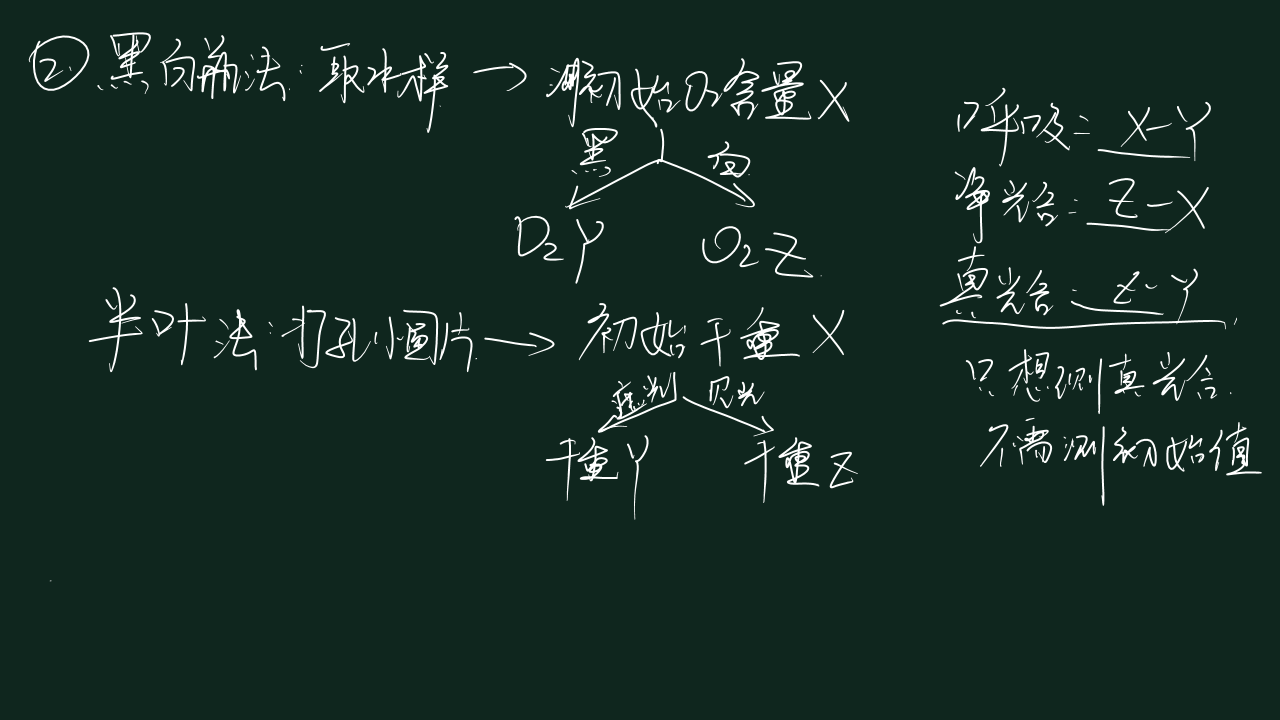 ② 黑白瓶法: 取水样 → 测初始O₂含量X
黑 白
O₂Y O₂Z
半叶法: 打孔小圆片 → 初始干重X
遮光 见光
干重Y 干重Z
呼吸: X-Y
净光合: Z-X
真光合: Z-Y
只想测真光合
不需测初始值